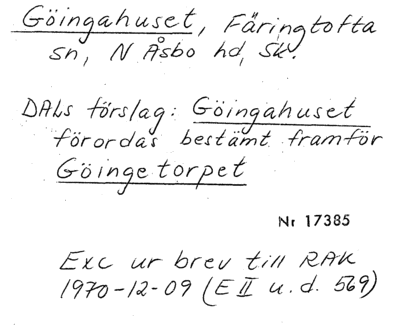 Göingahuset, Färingtofta
sn, N Åsbo hd, Sk.
DALs förslag: Göingahuset
förordas bestämt framför
Göingetorpet
Nr 17385
Exc ur brev till RAK
1970-12-09 (E II u. d. 569)